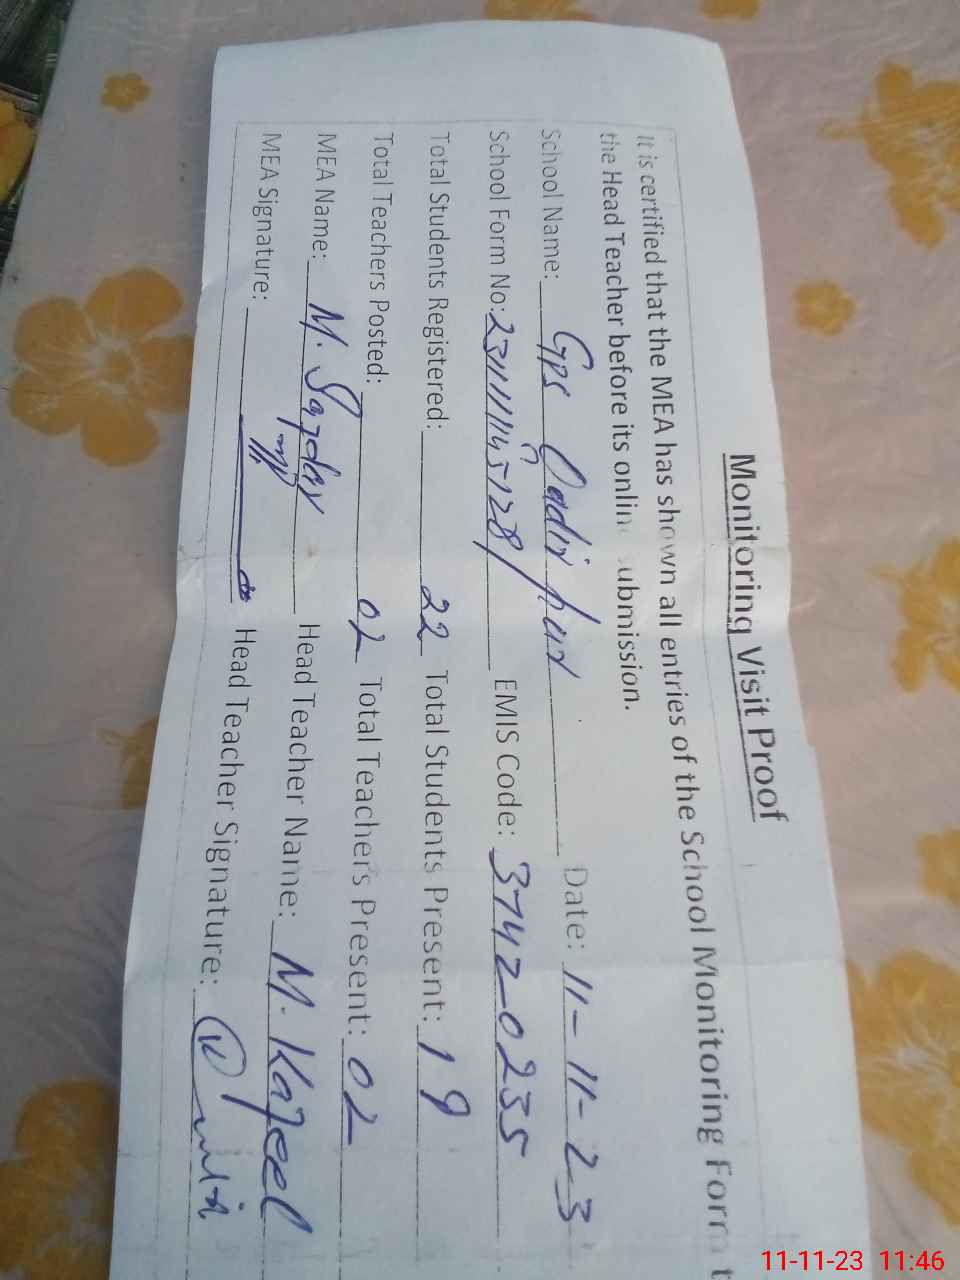 Monitoring Visit Proof
It is certified that the MEA has shown all entries of the School Monitoring Form t
the Head Teacher before its online submission.
School Name: GPS Qadir pur Date: 11-11-23
School Form No: EMIS Code: 37420235
Total Students Registered: 22 Total Students Present: 19
Total Teachers Posted: 02 Total Teachers Present: 02
MEA Name: M. Head Teacher Name: M.
MEA Signature: Head Teacher Signature:
11-11-23 11:46